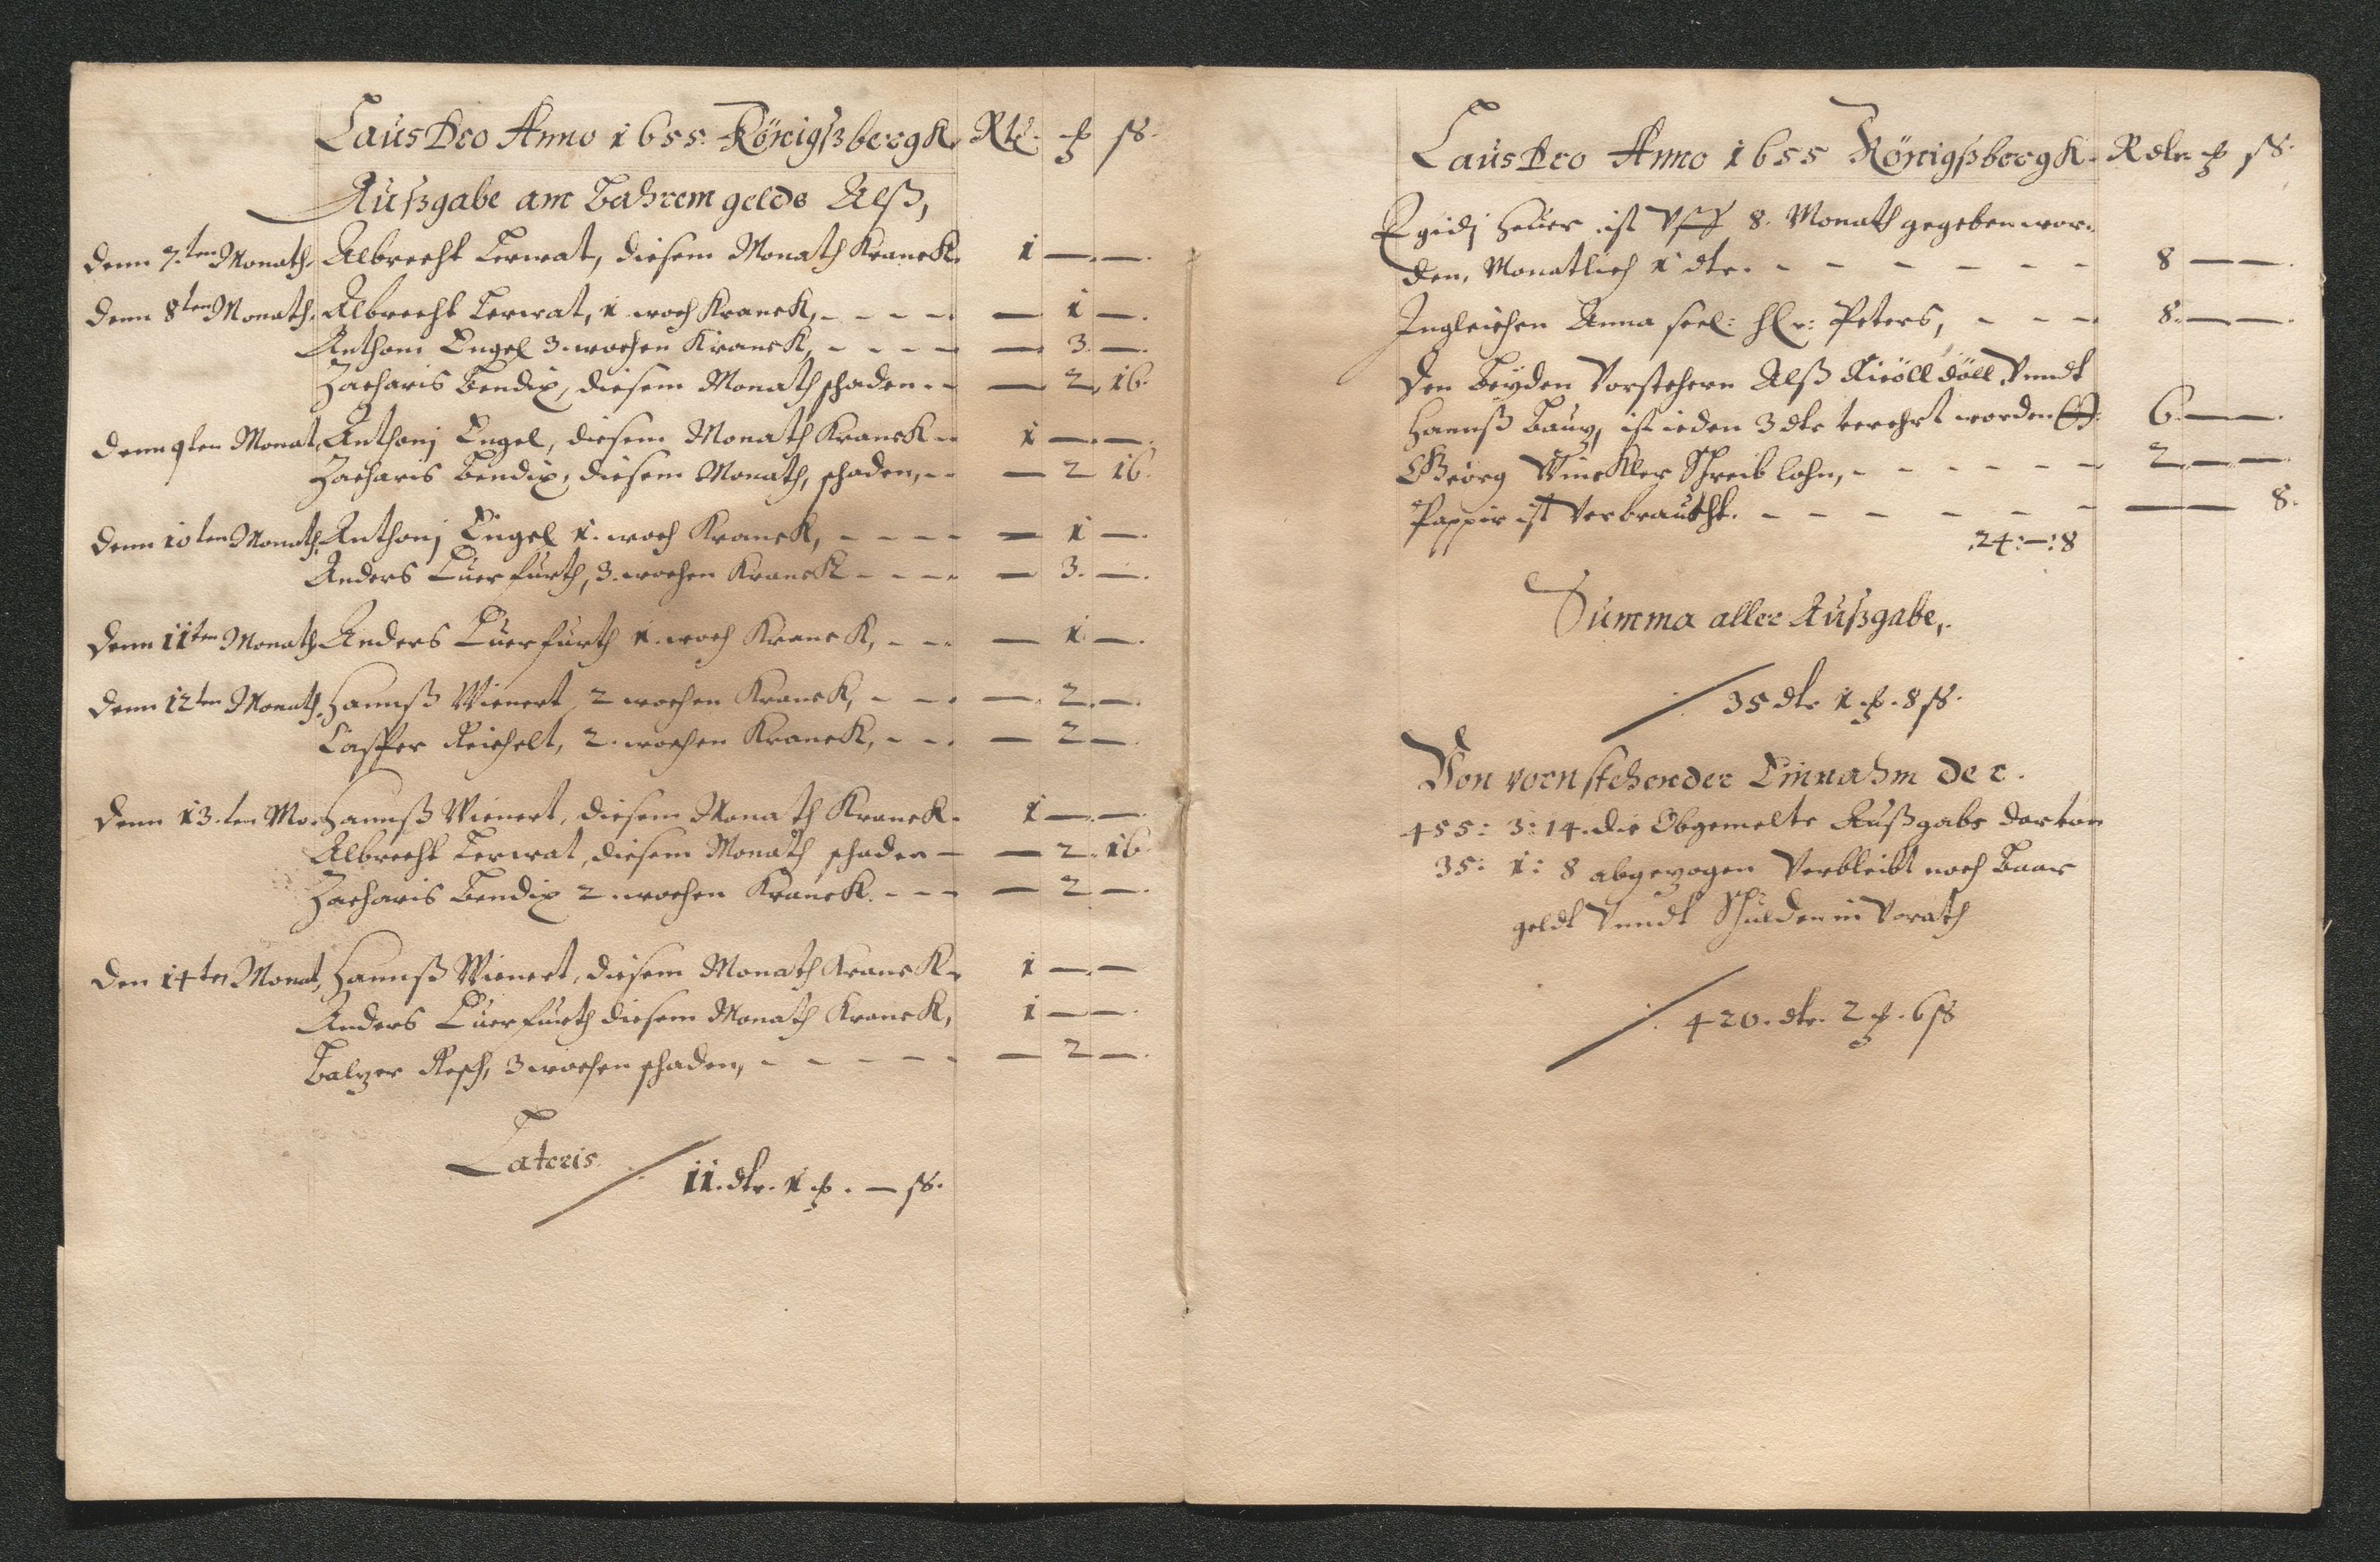 Laus Deo Anno 1655. Königßbergk. Rtl. ort ß.
Außgabe am Bahrem gelde Alß,
Denn 7ten Monath. Albrecht Lerwat, diesem Monath Kranck. 1 — —
Denn 8ten Monath. Albrecht Lerwat, 1 woch Kranck, — 1 —
Anthoni Engel 3 wochen Kranck, — 3 —
Zacharis Bendix, diesem Monath schaden — 2 16
Denn 9ten Monat. Anthonj Engel, diesem Monath Kranck 1 — —
Zacharis Bendix, diesem Monath, schaden, — 2 16
Denn 10ten Monath. Anthonj Engel 1. woch Kranck, — 1 —
Anders Querfurth, 3. wochen Kranck — 3 —
Denn 11ten Monath. Anders Querfurth 1. woch Kranck, — 1 —
Denn 12ten Monath. Hannß Wienert, 2 wochen Kranck, — 2 —
Casper Reichelt, 2. wochen Kranck, — 2 —
Denn 13.ten Mo. Hannß Wienert, diesem Monath Kranck. 1 — —
Albrecht Lerwat, diesem Monath schaden — 2 16
Zacharis Bendix 2. wochen Kranck. — 2 —
Den 14ten Monat, Hannß Wienert, diesem Monath Kranck 1 — —
Anders Querfurth diesem Monath Kranck, 1 — —
Balzer Resch, 3 wochen schaden, — 2 —
Lateris
11. dlr. 1 ort. — ß.
Laus Deo Anno 1655 Königßbergk. Rdlr. ort ß.
Egidj Heuer ist Uff 8. Monath gegeben wor-
den, Monatlich 1 dlr. 8 — —
Ingleichen Anna seel: Hl r: Peters, 8 — —
Den Beyden Vorstehern Alß döll Vundt
Hannß Bauz, ist ieden 3 dlr verehrt worden 6 — —
Georg Winckler Schreib lohn, 2 — —
Pappir ist Verbraucht. — — 8.
24:—:8
Summa aller Außgabe,
35 dlr 1 ort. 8 ß.
Von vornstehender Einnahm der.
455: 3: 14. die Obgemelte Außgabe darvon
35: 1: 8 abgezogen Verbleibt noch Baar
geldt Vundt Schulden in Vorath
420. dlr. 2 ort. 6 ß